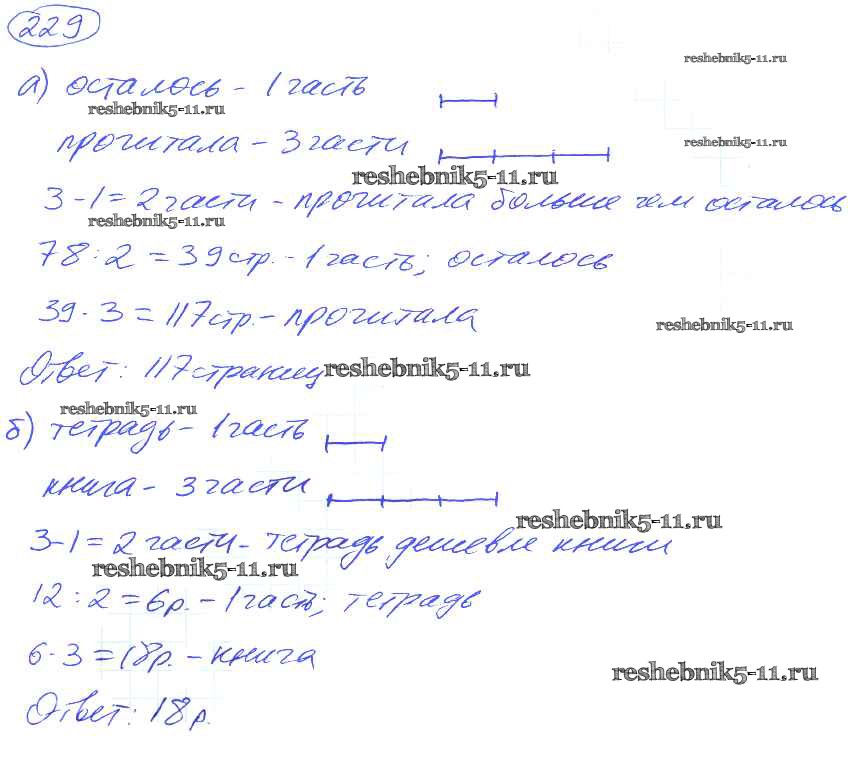 229
reshebnik5-11.ru
а) осталось - 1 часть
reshebnik5-11.ru
прочитала - 3 части
reshebnik5-11.ru
reshebnik5-11.ru
3-1=2 части - прочитала больше чем осталось
reshebnik5-11.ru
78:2=39стр.-1 часть; осталось
39·3=117стр.-прочитала
reshebnik5-11.ru
Ответ: 117страниц
reshebnik5-11.ru
reshebnik5-11.ru
б) тетрадь - 1 часть
книга - 3 части
reshebnik5-11.ru
3-1=2 части - тетрадь дешевле книги
reshebnik5-11.ru
12:2=6р.-1 часть; тетрадь
6·3=18р.-книга
reshebnik5-11.ru
Ответ: 18р.